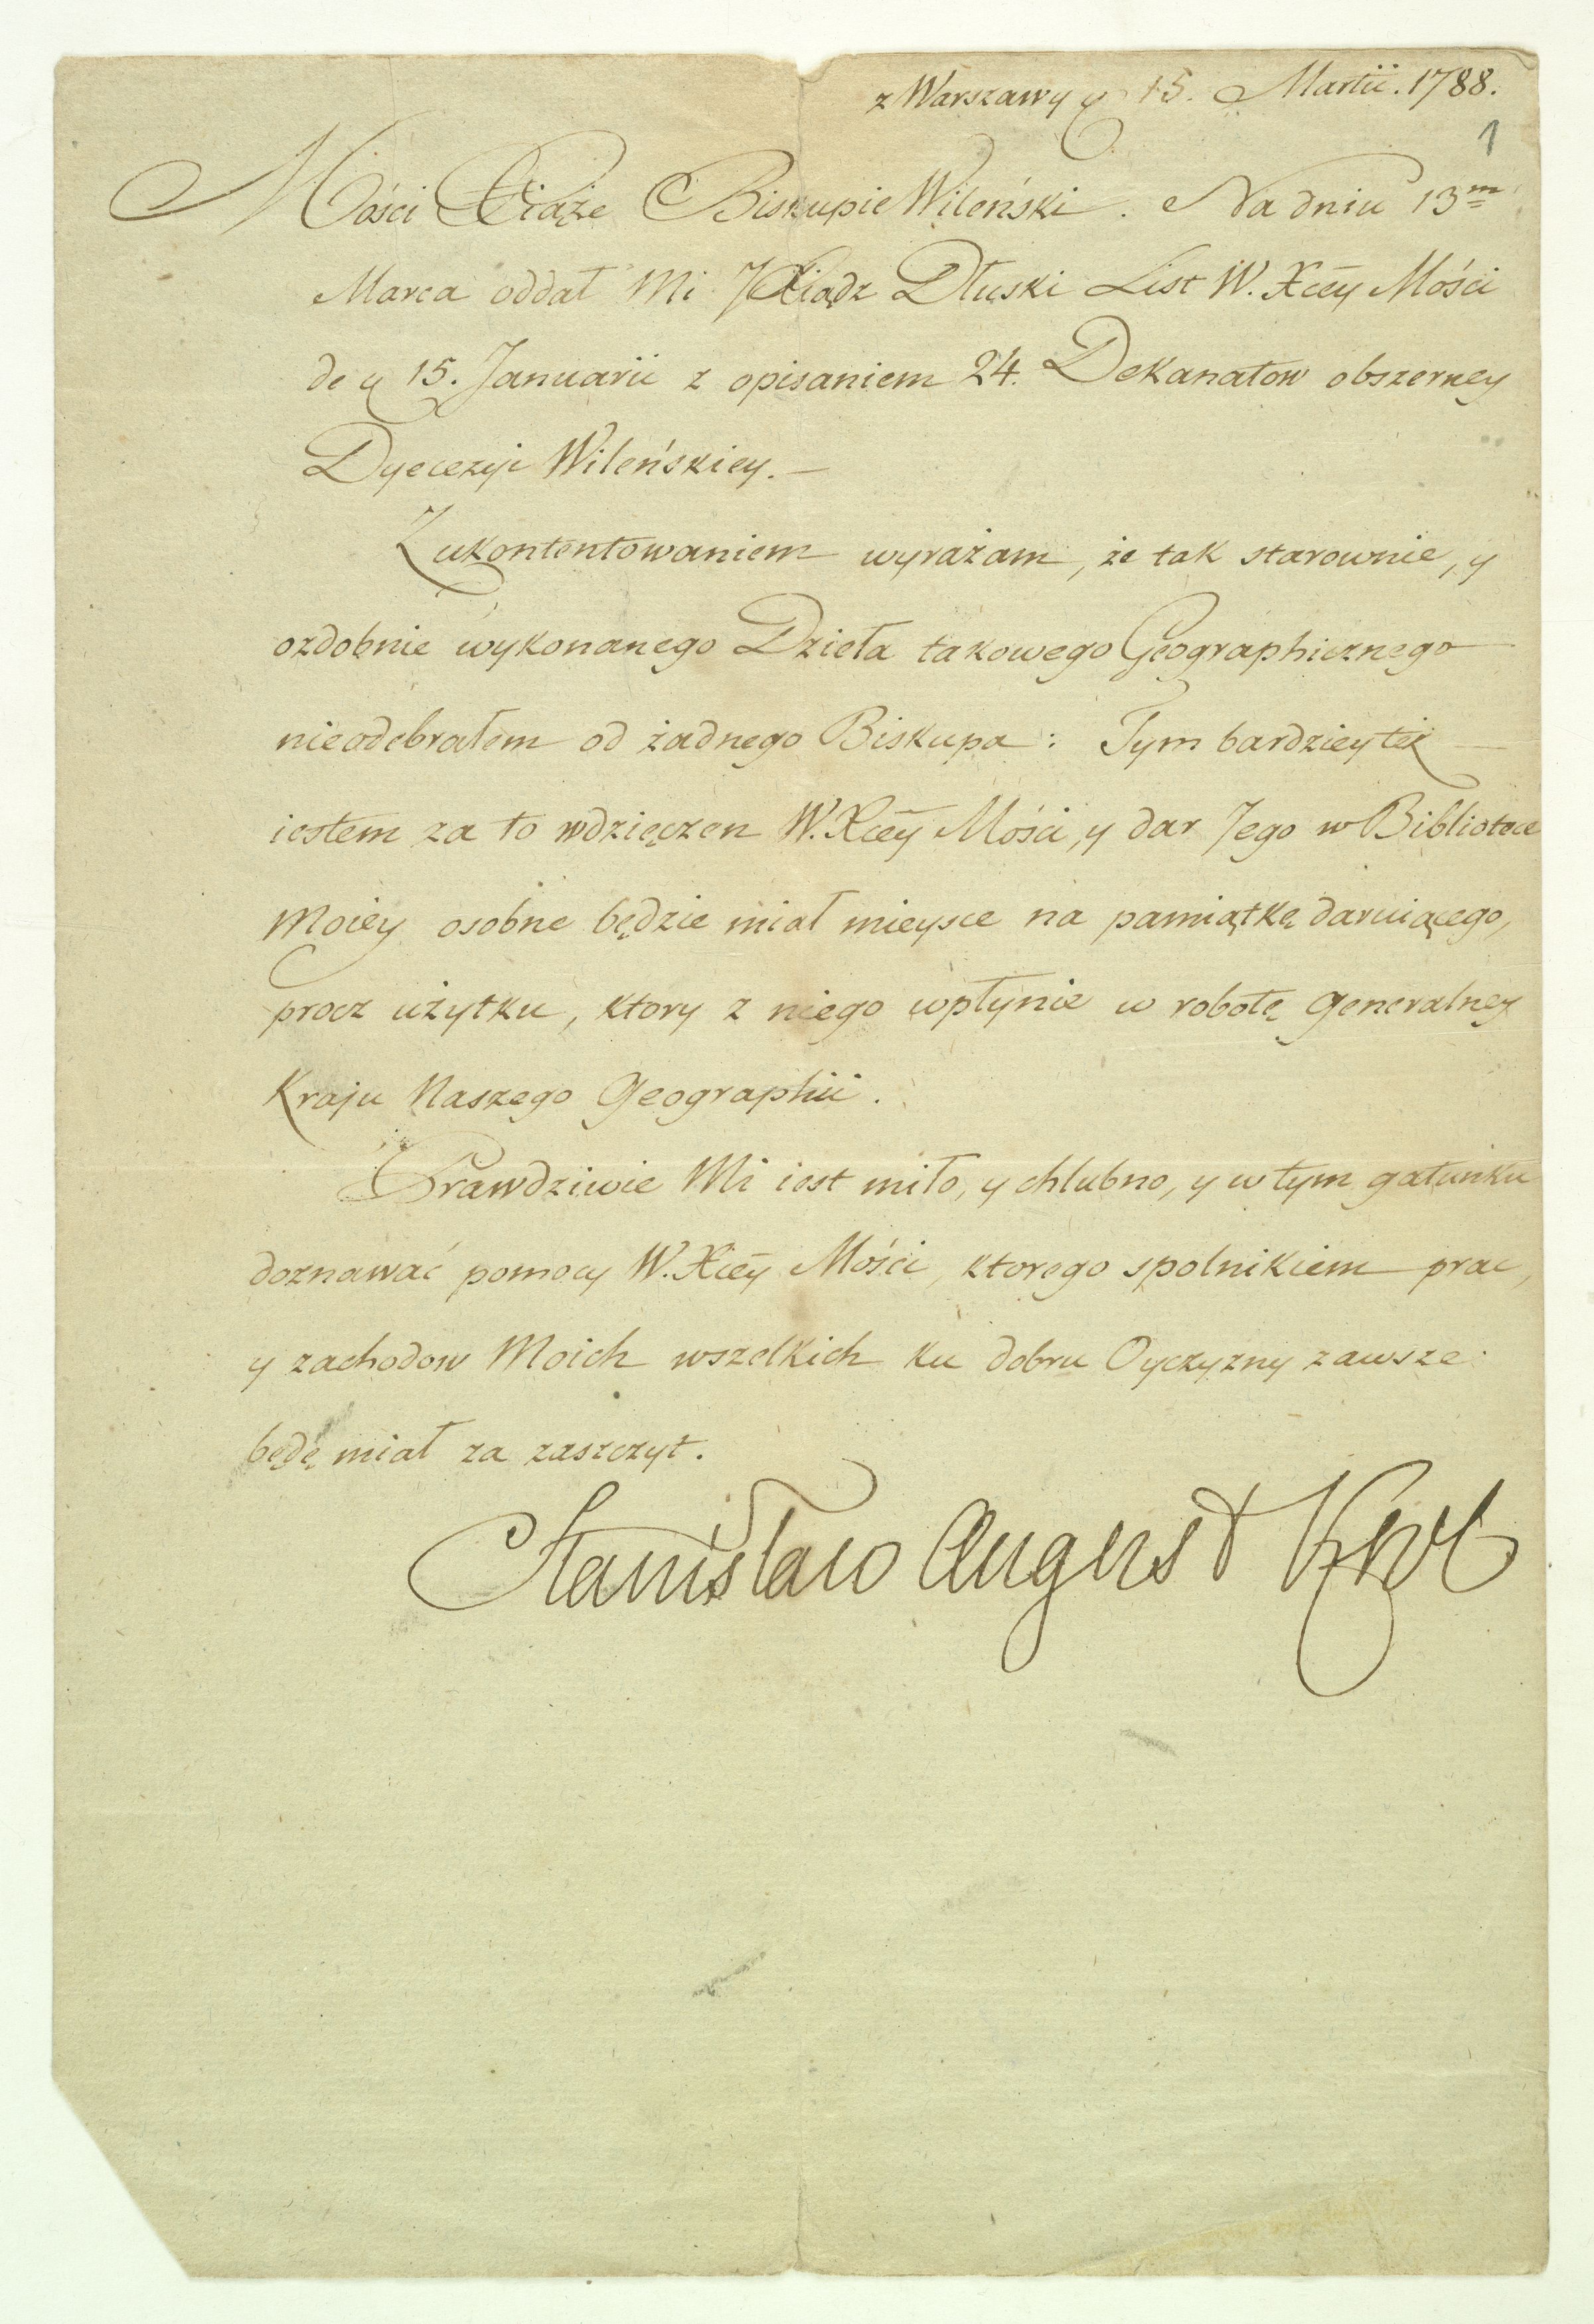 z Warszawy d 15. Martii. 1788.
1
Mości Xiąże Biskupie Wileński. Na dniu 13m
Marca oddał Mi JXiądz Dłuski List W. Xcey Mości
de d 15. Januarii z opisaniem 24. Dekanatow obszerney
Dyecezyi Wileńskiey. —
Z ukontentowaniem wyrażam, że tak starownie, y
ozdobnie wykonanego Dzieła takowego Geographicznego
nieodebrałem od żadnego Biskupa: Tym bardziey też
iestem za to wdzięczen W. Xcey Mości, y dar Jego w Bibliotece
Moiey osobne będzie miał mieysce na pamiątkę daruiącego,
procz użytku, ktory z niego wpłynie w robotę generalney
Kraju Naszego Geographii.
Prawdziwie Mi iest miło, y chlubno, y w tym gatunku
doznawać pomocy W. Xcey Mości, ktorego spolnikiem prac,
y zachodow Moich wszelkich ku dobru Oyczyzny zawsze
będę miał za zaszczyt.
Stanisław August Krol